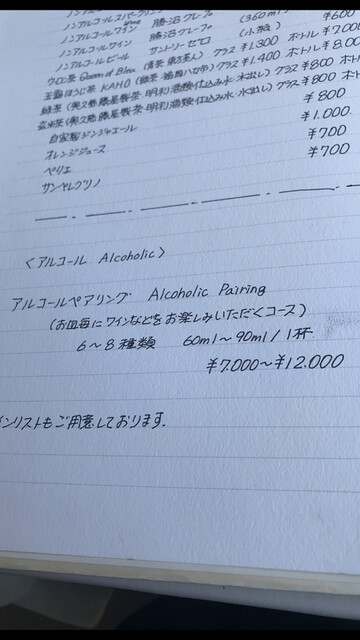 ノンアルコールスパークリング
ノンアルコールワイン 勝沼グレープ (360ml) ¥600
ノンアルコールワイン 勝沼グレープ ¥7.000
ノンアルコールビール サントリーゼロ (小瓶)
ウーロン茶 Queen of Blue (青茶 東方美人) グラス ¥1.300 ボトル ¥7.000
玉露ほうじ茶 KAHO (緑茶 福岡八女市) グラス ¥1.400 ボトル ¥8.000
緑茶 仕込み水・水出し) グラス ¥800 ボトル
玄米茶 仕込み水・水出し) グラス ¥800 ボトル
自家製ジンジャエール ¥800
オレンジジュース ¥1.000
ペリエ ¥700
サンペレグリノ ¥700
<アルコール Alcoholic>
アルコールペアリング Alcoholic Pairing
(お皿毎にワインなどをお楽しみいただくコース)
6~8種類 60ml~90ml/1杯
¥7.000~¥12.000
インリストもご用意しております.